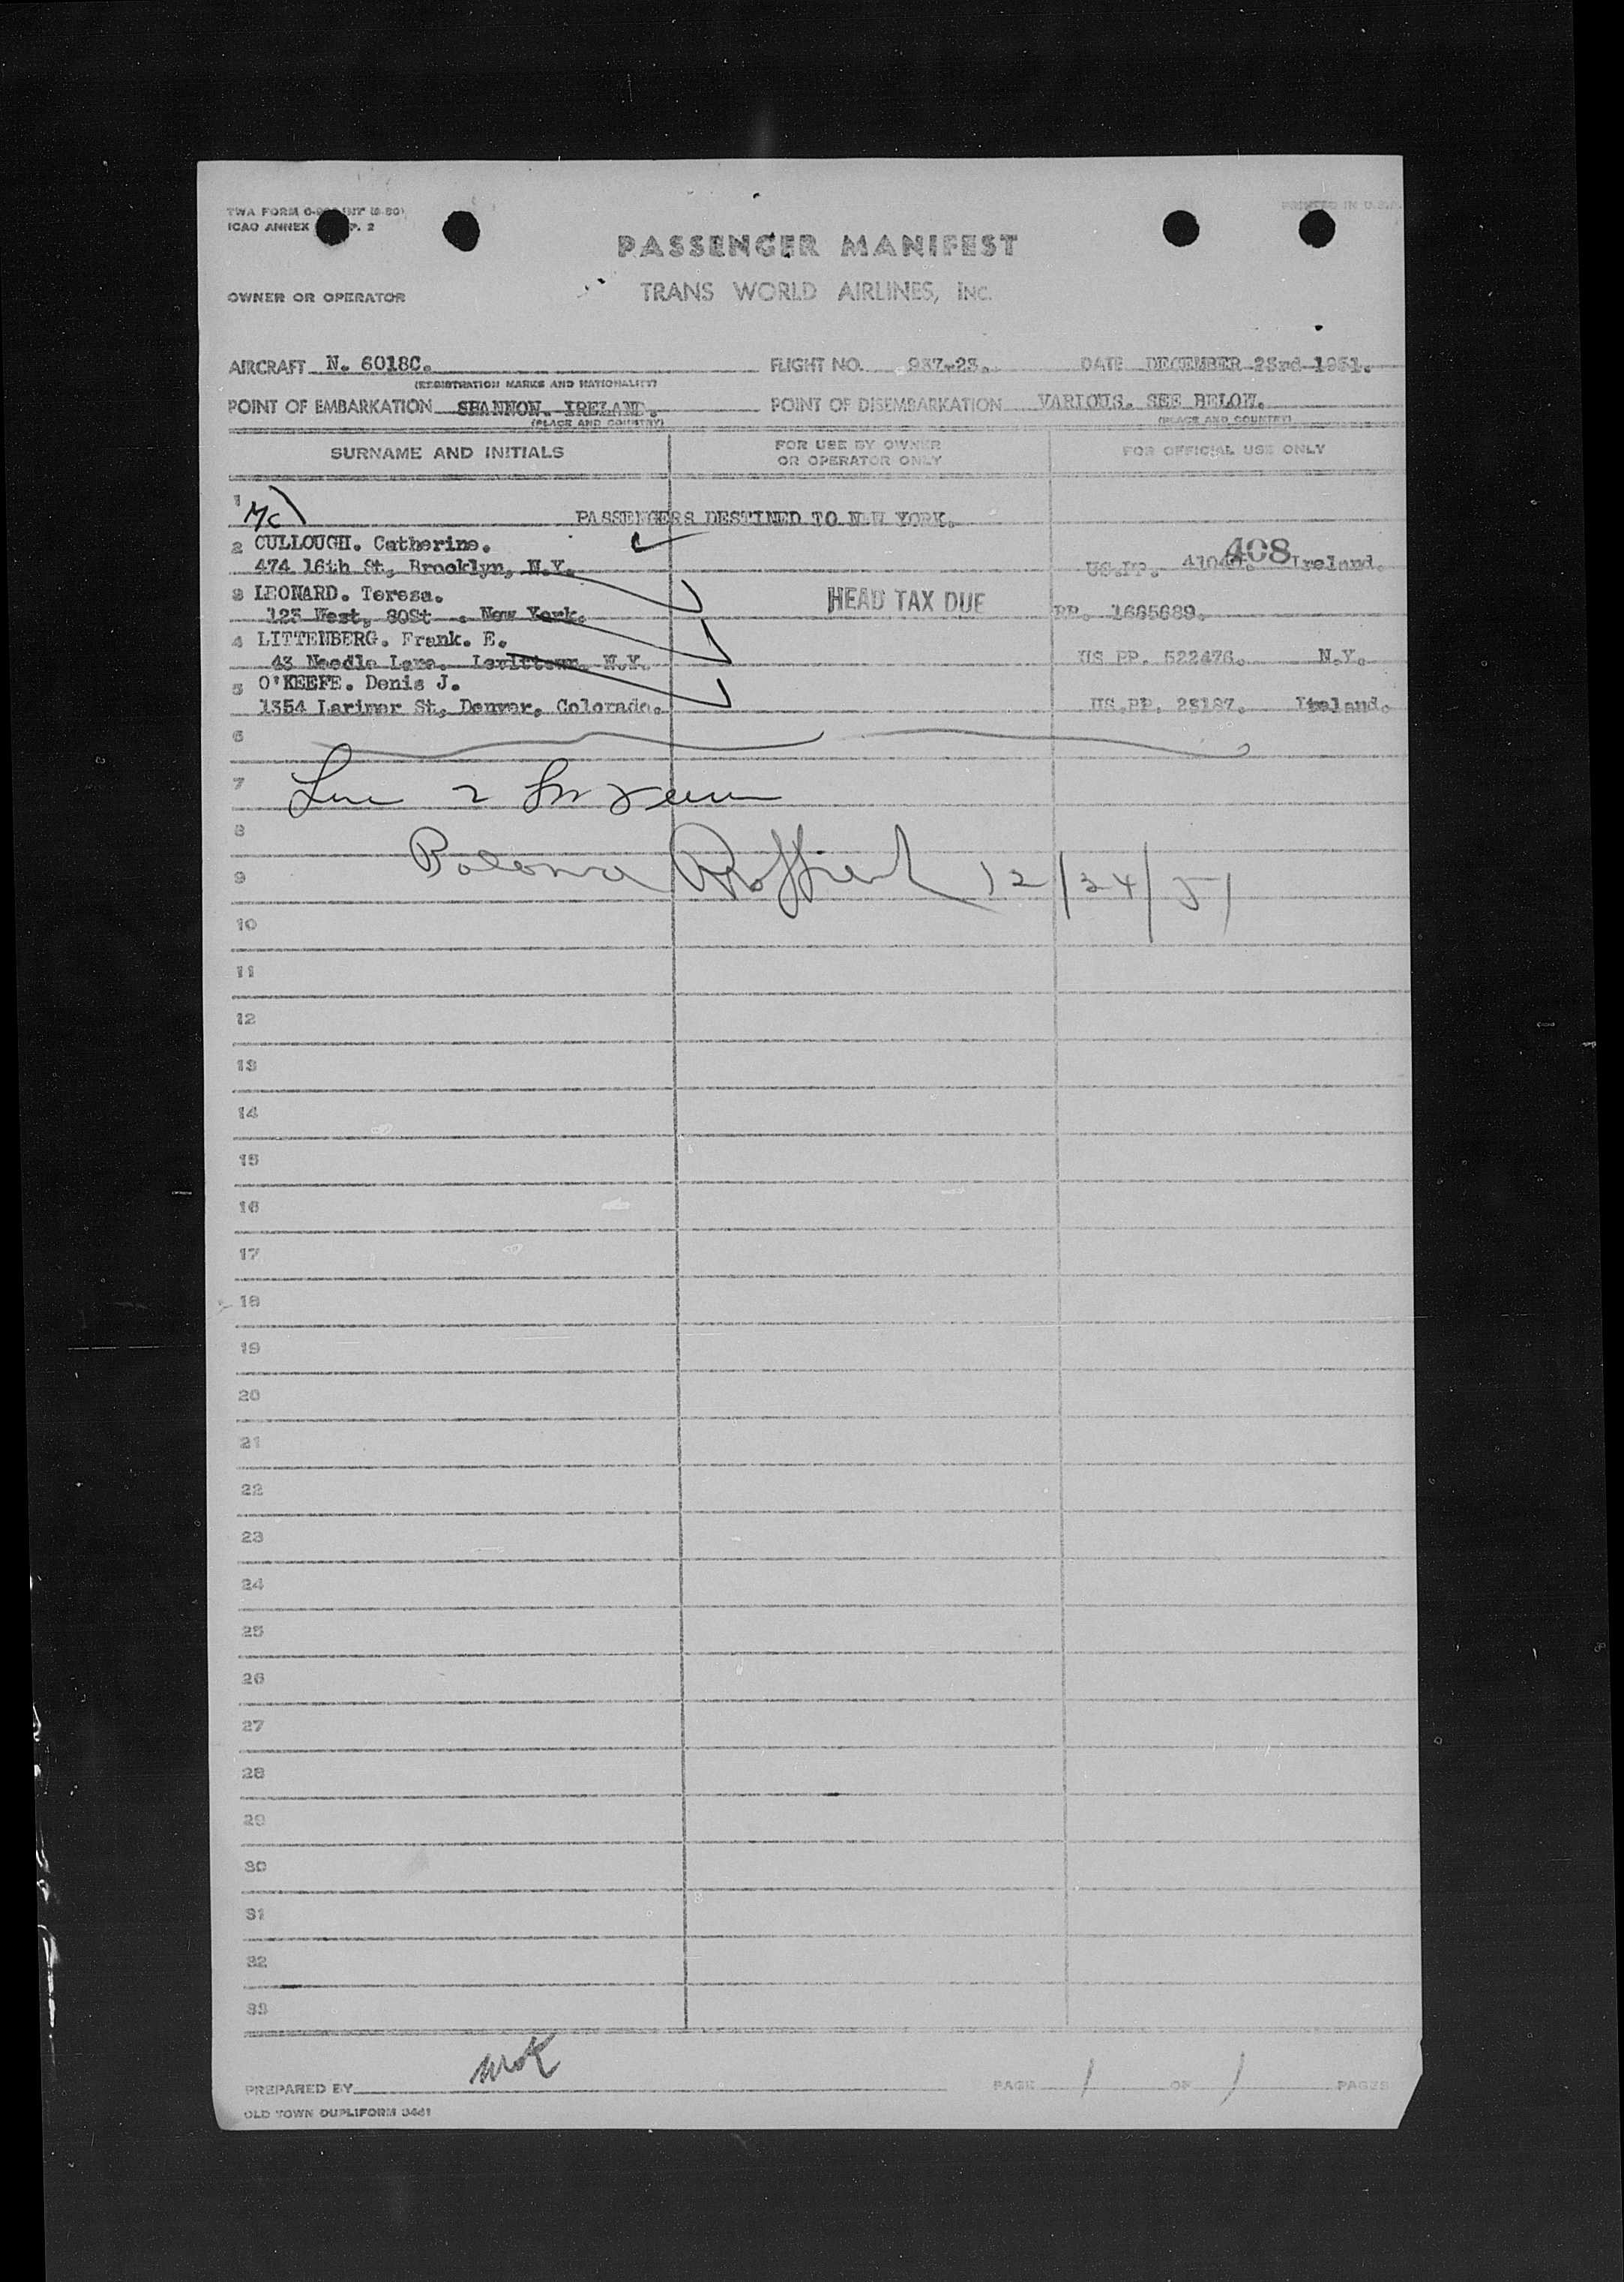 TWA FORM
ICAO ANNEX P. 2
PRINTED IN U.S.A.
PASSENGER MANIFEST
OWNER OR OPERATOR TRANS WORLD AIRLINES, INC.
AIRCRAFT N. 6018C. FLIGHT NO. 937-23. DATE DECEMBER 23rd 1951.
(REGISTRATION MARKS AND NATIONALITY)
POINT OF EMBARKATION SHANNON. IRELAND. POINT OF DISEMBARKATION VARIOUS. SEE BELOW.
(PLACE AND COUNTRY) (PLACE AND COUNTRY)
SURNAME AND INITIALS FOR USE BY OWNER OR OPERATOR ONLY FOR OFFICIAL USE ONLY
1
Mc PASSENGERS DESTINED TO NEW YORK.
2 CULLOUGH. Catherine. 408
474 16th St, Brooklyn, N.Y. US.PP. Ireland.
3 LEONARD. Teresa. HEAD TAX DUE
123 West, 80St . New York. PP. 1665689.
4 LITTENBERG. Frank. E.
43 Needle Lane. Levittown. N.Y. US PP. 522476. N.Y.
5 O'KEEFE. Denis J.
1354 Larimer St, Denver, Colorado. US.PP. 23187. Ireland.
6
7 Line 2
8
9 12/24/51
10
11
12
13
14
15
16
17
18
19
20
21
22
23
24
25
26
27
28
29
30
31
32
33
PREPARED BY PAGE 1 OF 1 PAGES
OLD TOWN DUPLIFORM 3461